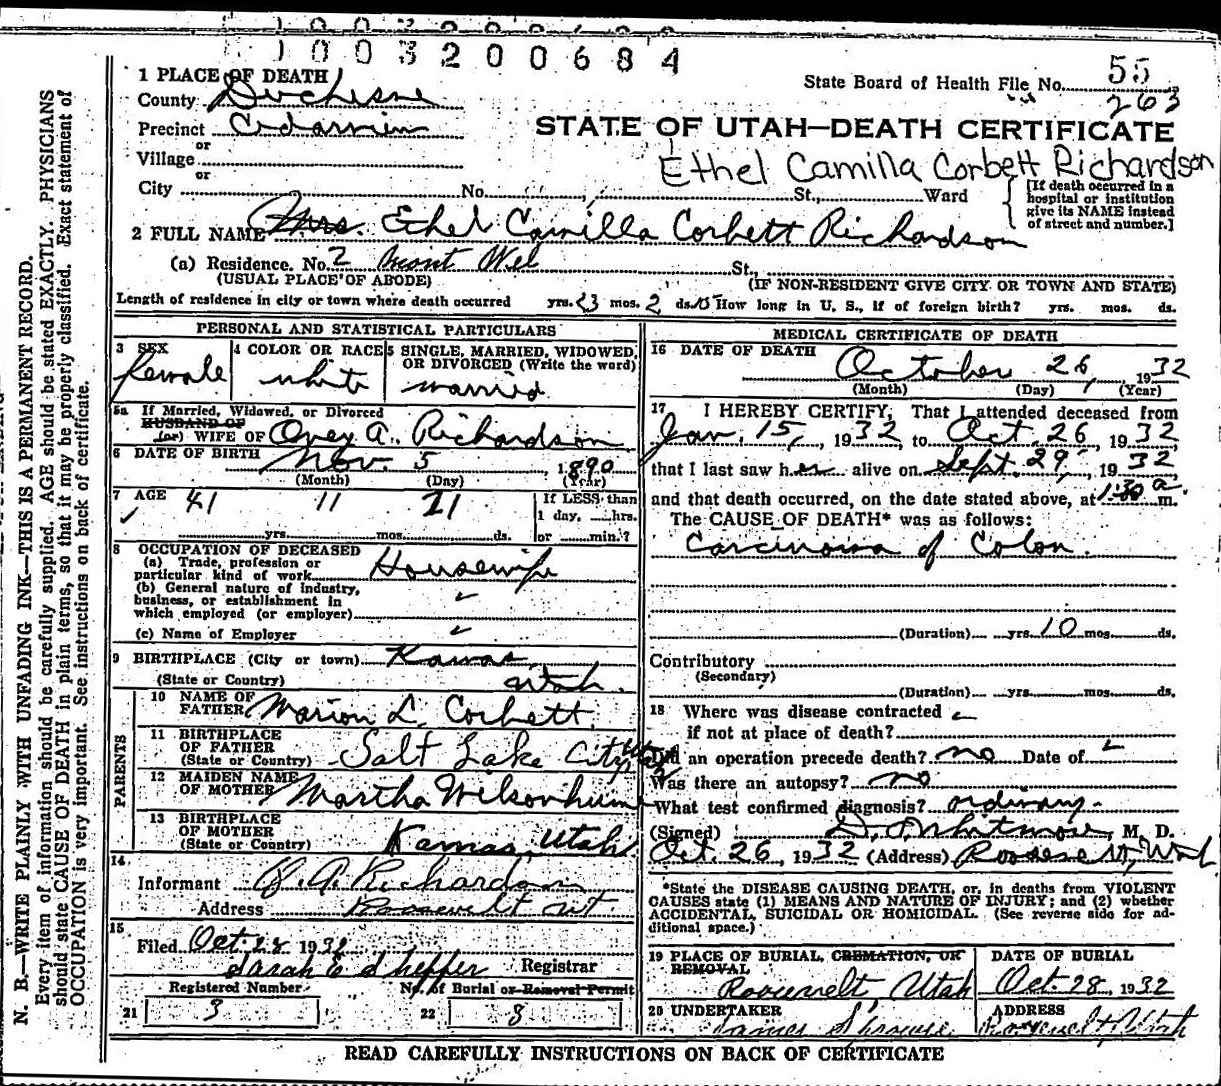 1003200684
1 PLACE OF DEATH
State Board of Health File No. 55
County Duchesne
263
Precinct
STATE OF UTAH—DEATH CERTIFICATE
or
Village
Ethel Camilla Corbett Richardson
or
City No. St., Ward
[If death occurred in a hospital or institution give its NAME instead of street and number.]
2 FULL NAME Mrs. Ethel Camilla Corbett Richardson
(a) Residence. No. 2 St.,
(USUAL PLACE OF ABODE) (IF NON-RESIDENT GIVE CITY OR TOWN AND STATE)
Length of residence in city or town where death occurred yrs. 23 mos. 2 ds. 15 How long in U. S., if of foreign birth? yrs. mos. ds.
PERSONAL AND STATISTICAL PARTICULARS
3 SEX
Female
4 COLOR OR RACE
white
5 SINGLE, MARRIED, WIDOWED,
OR DIVORCED (Write the word)
married
5a If Married, Widowed, or Divorced
HUSBAND OF
(or) WIFE OF A. Richardson
6 DATE OF BIRTH Nov. 5, 1890
(Month) (Day) (Year)
7 AGE 41 11 21
yrs. mos. ds.
If LESS than
1 day, hrs.
or min.?
8 OCCUPATION OF DECEASED
(a) Trade, profession or
particular kind of work Housewife
(b) General nature of industry,
business, or establishment in
which employed (or employer)
(c) Name of Employer
9 BIRTHPLACE (City or town) Kamas,
(State or Country) Utah.
PARENTS
10 NAME OF
FATHER Marion L. Corbett
11 BIRTHPLACE
OF FATHER
(State or Country) Salt Lake City Utah
12 MAIDEN NAME
OF MOTHER Martha
13 BIRTHPLACE
OF MOTHER
(State or Country) Kamas, Utah
14
Informant O. A. Richardson
Address Roosevelt Ut
15
Filed Oct. 28 1932
Sarah E Sheffer Registrar
Registered Number No. of Burial or Removal Permit
21 3 22 3
MEDICAL CERTIFICATE OF DEATH
16 DATE OF DEATH October 26, 1932
(Month) (Day) (Year)
17 I HEREBY CERTIFY, That I attended deceased from
Jan. 15, 1932, to Oct. 26, 1932,
that I last saw her alive on Sept. 29, 1932
and that death occurred, on the date stated above, at 1:30 a m.
The CAUSE OF DEATH* was as follows:
Carcinoma of Colon.
(Duration) yrs. 10 mos. ds.
Contributory
(Secondary)
(Duration) yrs. mos. ds.
18 Where was disease contracted
if not at place of death?
Did an operation precede death? no Date of
Was there an autopsy? no
What test confirmed diagnosis? ordinary.
(Signed) Whitmore, M. D.
Oct. 26, 1932 (Address) Roosevelt, Utah
*State the DISEASE CAUSING DEATH, or, in deaths from VIOLENT
CAUSES state (1) MEANS AND NATURE OF INJURY; and (2) whether
ACCIDENTAL, SUICIDAL OR HOMICIDAL. (See reverse side for ad-
ditional space.)
19 PLACE OF BURIAL, CREMATION, OR
REMOVAL
Roosevelt, Utah
DATE OF BURIAL
Oct. 28, 1932
20 UNDERTAKER
James Sprouse
ADDRESS
Roosevelt, Utah
READ CAREFULLY INSTRUCTIONS ON BACK OF CERTIFICATE
N. B.—WRITE PLAINLY WITH UNFADING INK—THIS IS A PERMANENT RECORD.
Every item of information should be carefully supplied. AGE should be stated EXACTLY. PHYSICIANS
should state CAUSE OF DEATH in plain terms, so that it may be properly classified. Exact statement of
OCCUPATION is very important. See instructions on back of certificate.